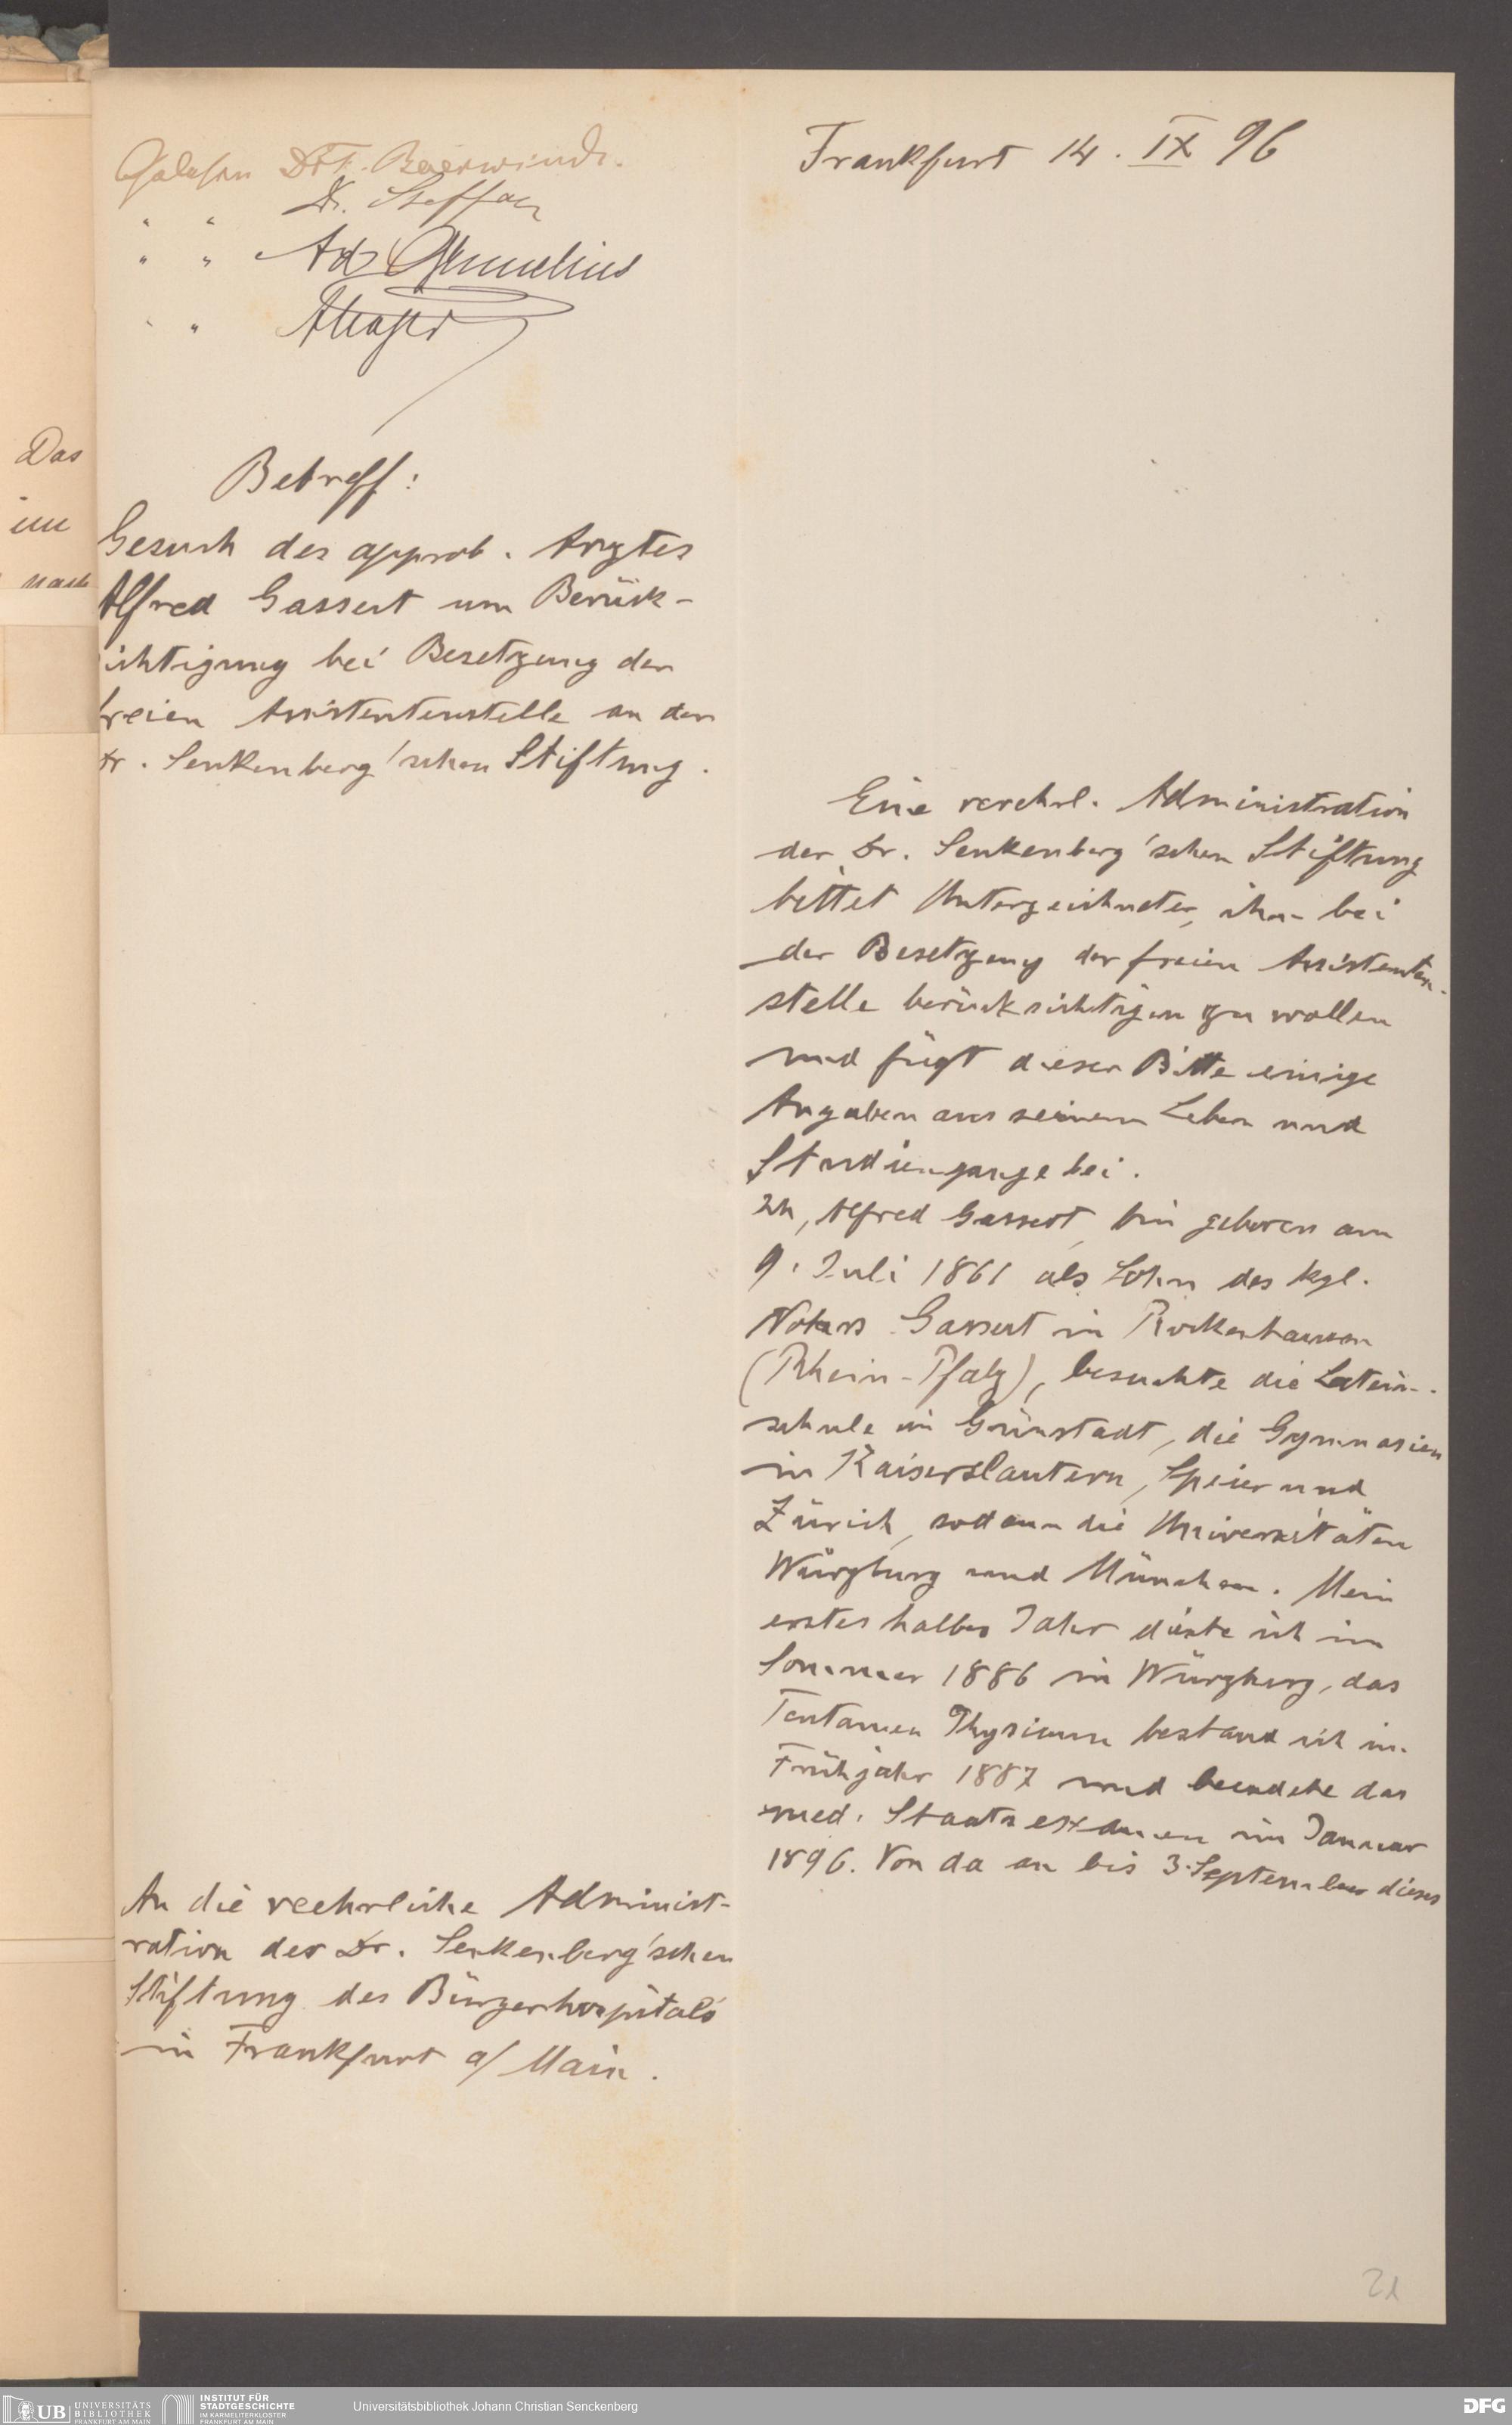 Gelesen Dr F. Baerwindt.
" " Dr. Steffan
" " Ad
" "
Frankfurt 14. IX 96
Betreff:
Gesuch des approb. Arztes
Alfred Gassert um Berück-
sichtigung bei Besetzung der
freien Assistentenstelle an der
Dr. Senkenberg'schen Stiftung.
An die verehrliche Administ-
ration der Dr. Senkenberg'schen
Stiftung des Bürgerhospitals
in Frankfurt a/ Main.
Eine verehrl. Administration
der Dr. Senkenberg'schen Stiftung
bittet Unterzeichneter, ihn bei
der Besetzung der freien Assistenten-
stelle berücksichtigen zu wollen
und fügt dieser Bitte einige
Angaben aus seinem Leben und
Studiengange bei.
Ich, Alfred Gassert, bin geboren am
9. Juli 1861 als Sohn des kgl.
Notars Gassert in Rockenhausen
(Rhein-Pfalz), besuchte die Latein-
schule in Grünstadt, die Gymnasien
in Kaiserslautern, Speier und
Zürich, sodann die Universitäten
Würzburg und München. Mein
erstes halbes Jahr diente ich im
Sommer 1886 in Würzburg, das
Tentamen Physicum bestand ich im
Frühjahr 1887 und beendete das
med. Staatsexamen im Januar
1896. Von da an bis 3. September dieses
21
Das
im
nach
UB UNIVERSITÄTS
BIBLIOTHEK
FRANKFURT AM MAIN
INSTITUT FÜR
STADTGESCHICHTE
IM KARMELITERKLOSTER
FRANKFURT AM MAIN
Universitätsbibliothek Johann Christian Senckenberg
DFG